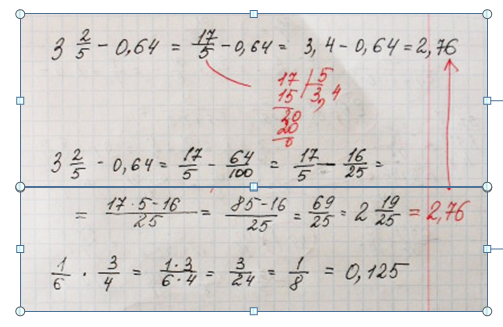 3 2/5 - 0,64 = 17/5 - 0,64 = 3,4 - 0,64 = 2,76
17 | 5
15 | 3,4
20
20
0
3 2/5 - 0,64 = 17/5 - 64/100 = 17/5 - 16/25 =
= (17·5-16)/25 = (85-16)/25 = 69/25 = 2 19/25 = 2,76
1/6 · 3/4 = (1·3)/(6·4) = 3/24 = 1/8 = 0,125